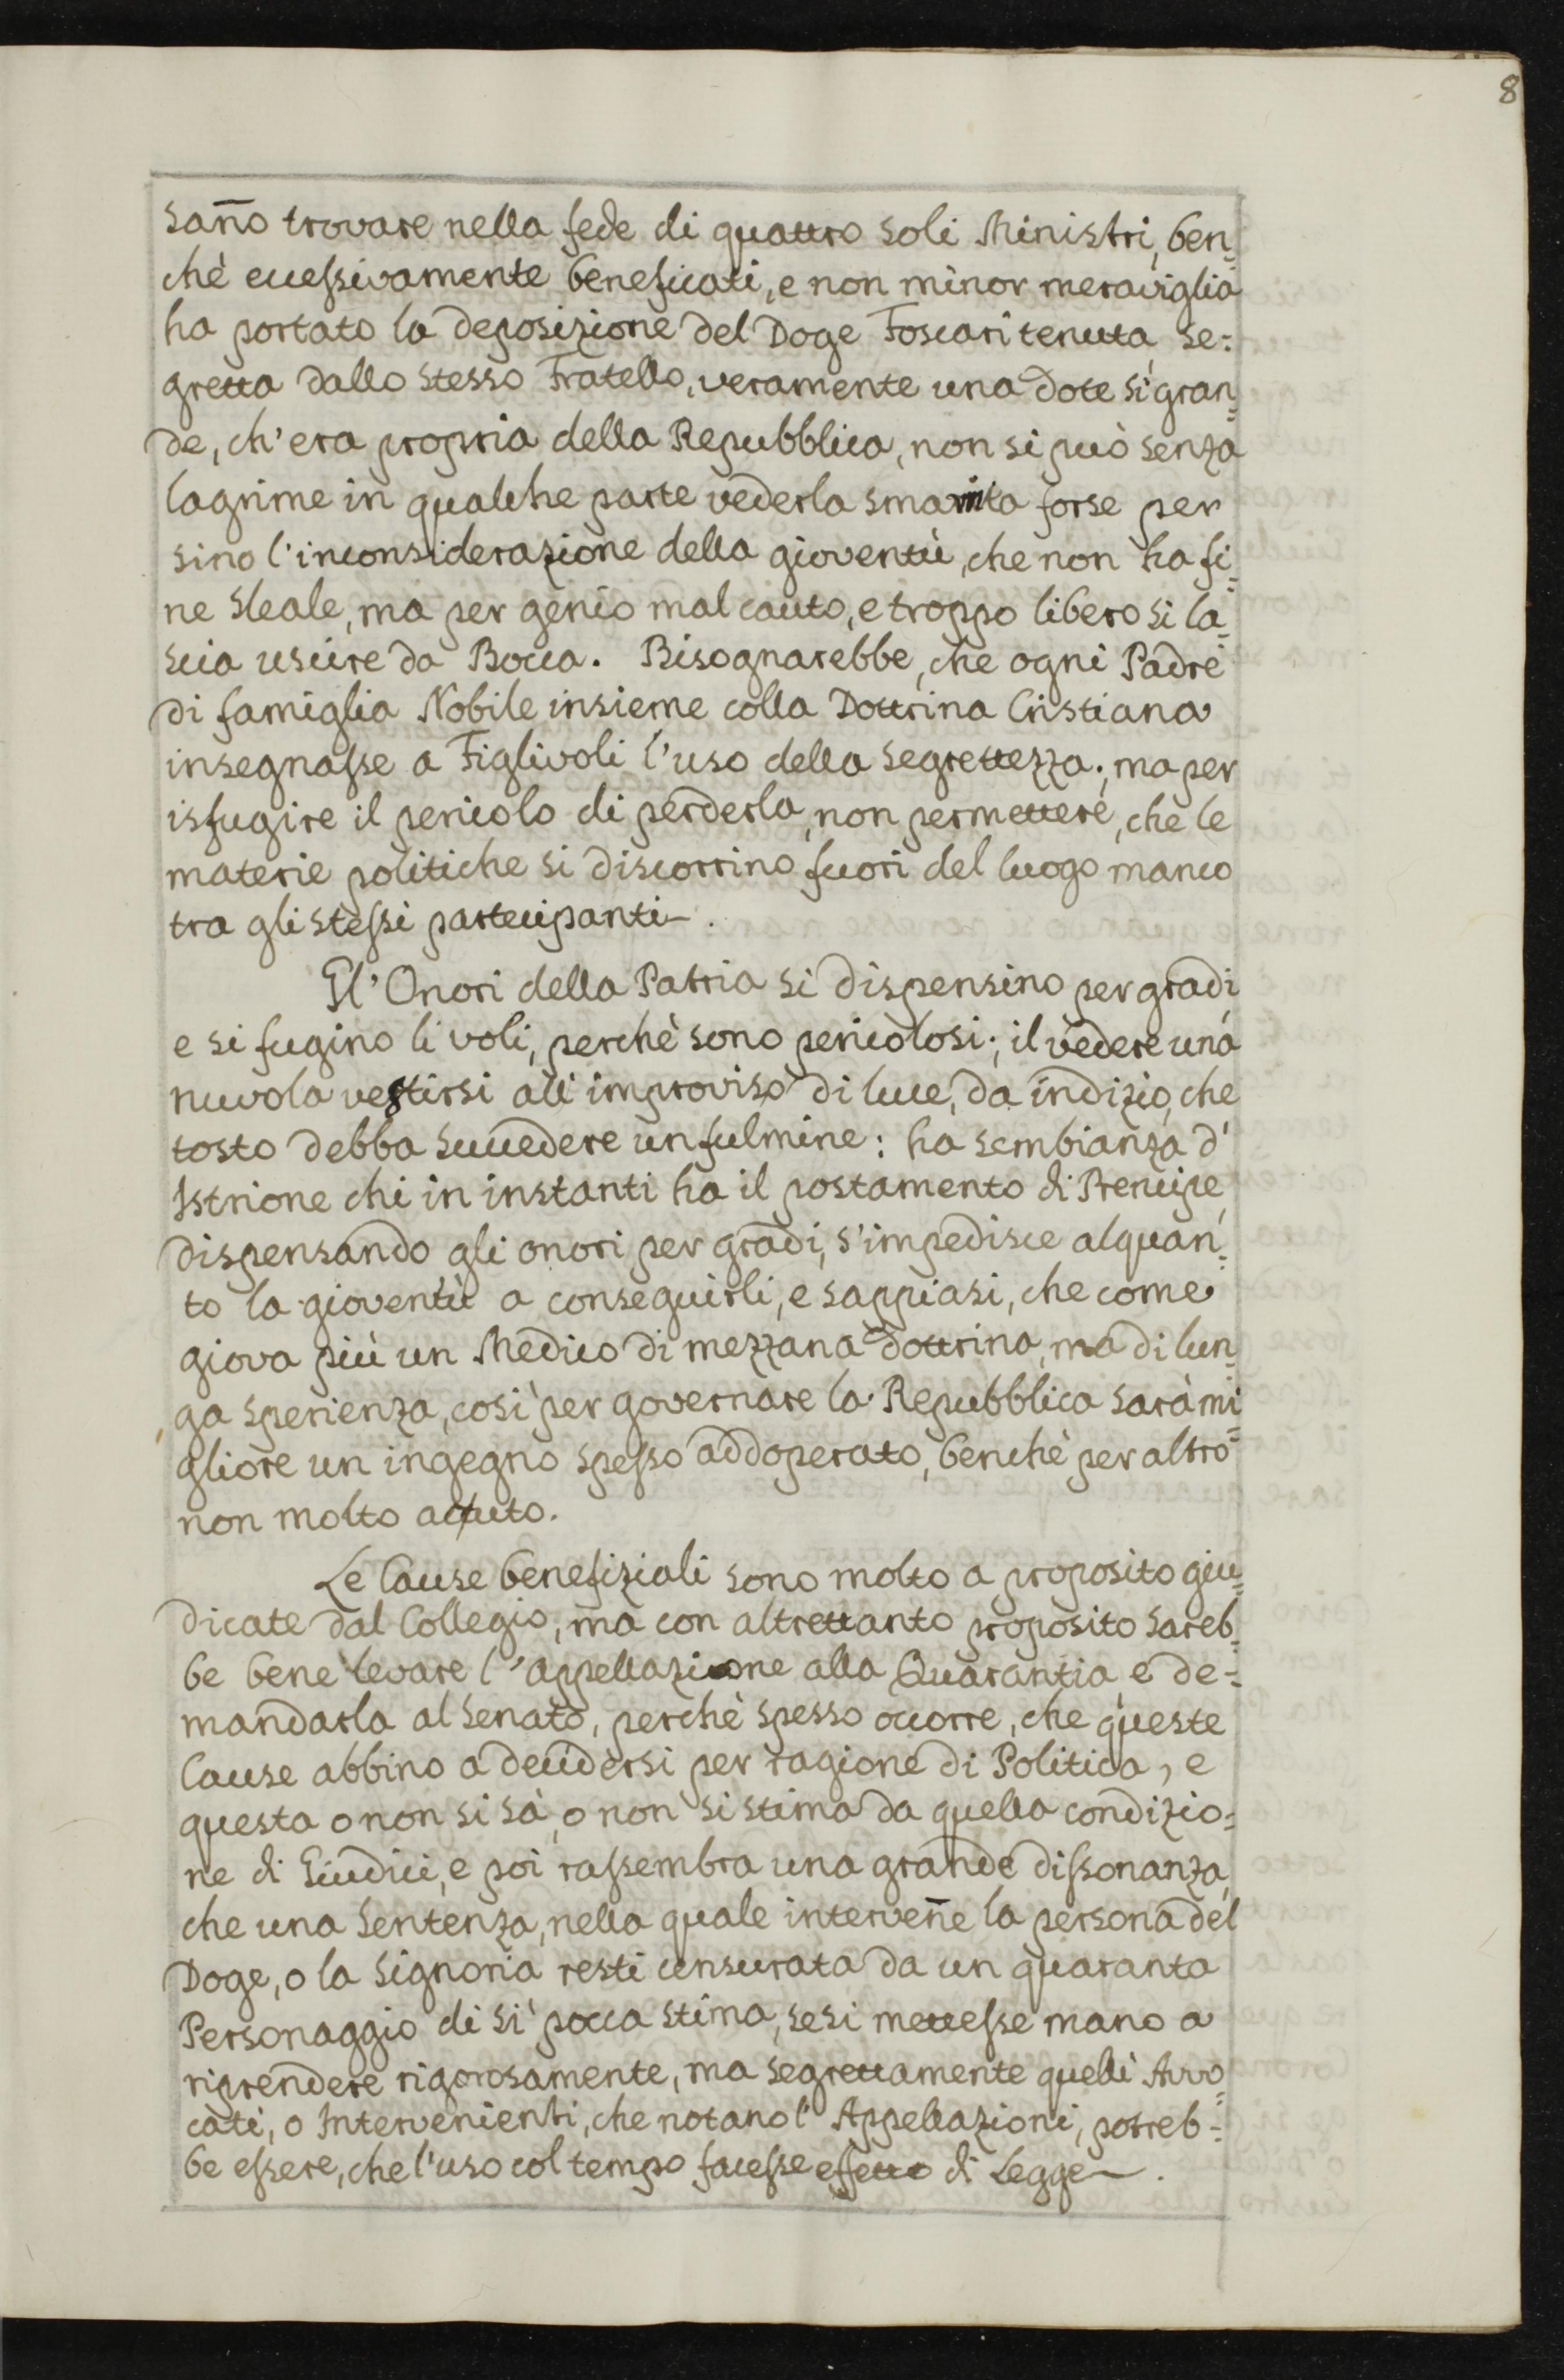 8
sañno trovare nella fede di quattro soli Ministri, ben-
chè eccessivamente beneficati, e non minor meraviglia
ha portato la deposizione del Doge Foscari tenuta se:
gretta dallo stesso Fratello, veramente una dote sì gran-
de, ch'era propria della Repubblica, non si può senza
lagrime in qualche parte vederla smarrita forse per
sino l'inconsiderazione della gioventù, che non ha fi-
ne sleale, ma per genio mal cauto, e troppo libero si la-
scia uscire da Bocca. Bisognarebbe, che ogni Padre
di famiglia Nobile insieme colla Dottrina Cristiana
insegnasse a Figlivoli l'uso della segrettezza; ma per
isfugire il pericolo di perderla, non permettere, che le
materie politiche si discorrino fuori del luogo manco
tra gli stessi partecipanti.
Gl'Onori della Patria si dispensino per gradi
e si fugino li voli, perchè sono pericolosi; il vedere una
nuvola vestirsi all'improviso di luce, da indizio, che
tosto debba succedere un fulmine: ha sembianza d'
Istrione chi in instanti ha il postamento di Prencipe,
dispensando gli onori per gradi, s'impedisce alquan-
to la gioventù a conseguirli, e sappiasi, che come
giova più un Medico di mezzana dottrina, ma di lun-
ga sperienza, così per governare la Repubblica sarà mi-
gliore un ingegno spesso addoperato, benchè per altro
non molto accuto.
Le Cause benefiziali sono molto a proposito giu-
dicate dal Collegio, ma con altrettanto proposito sareb-
be bene levare l'appellazione alla Quarantia e de-
mandarla al Senato, perchè spesso occorre, che queste
Cause abbino a decidersi per ragione di Politica, e
questa o non si sà, o non si stima da quella condizio-
ne di Giudici, e poi rassembra una grande dissonanza,
che una Sentenza, nella quale interveñe la persona del
Doge, o la Signoria resti censurata da un quaranta
Personaggio di sì pocca stima, se si mettesse mano a
riprendere rigorosamente, ma segrettamente quelli Avvo-
cati, o Intervenienti, che notano l'Appellazioni, potreb-
be essere, che l'uso col tempo facesse effetto di Legge.